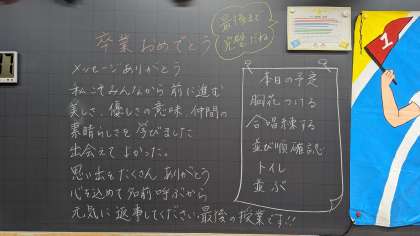 卒業おめでとう
最後まで
完璧だね
メッセージありがとう
私こそみんなから 前に進む
美しさ、優しさの意味、仲間の
素晴らしさを学びました
出会えてよかった。
思い出をたくさん ありがとう
心を込めて名前呼ぶから
元気に返事してください 最後の授業です!!
本日の予定
胸花つける
合唱練する
並び順確認
トイレ
並ぶ
1